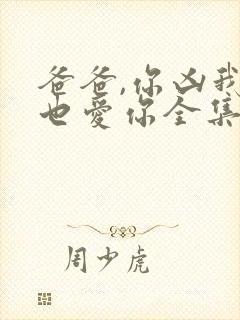 爸爸,你凶我
也爱你全集
周少虎